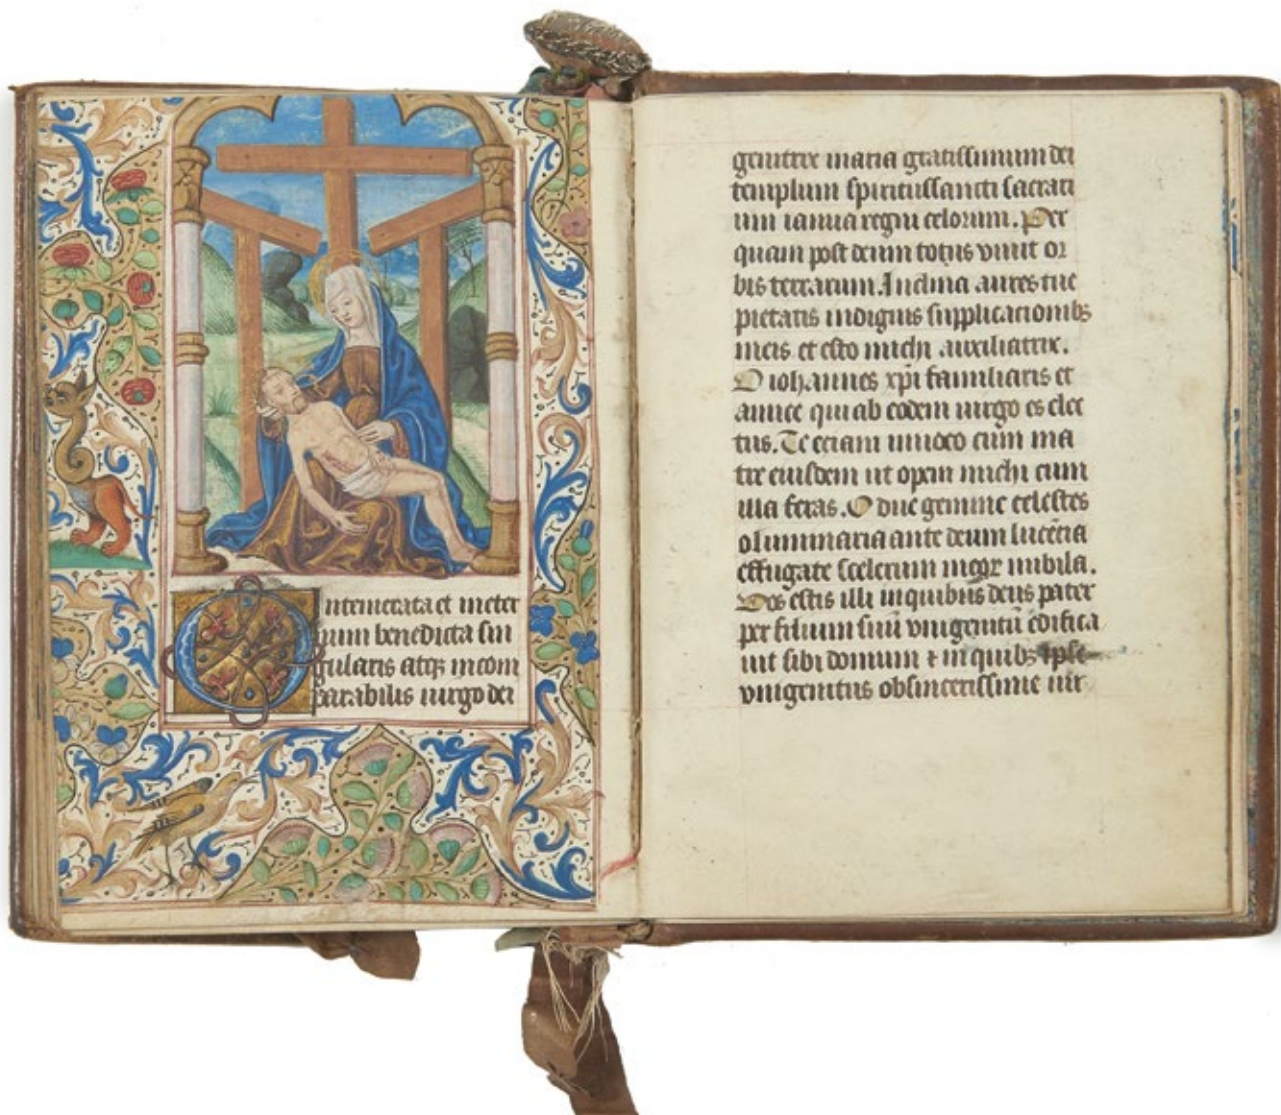 O intemerata et in eter
num benedicta sin
gularis atq; incom
parabilis uirgo dei
genitrix maria gratissimum dei
templum spiritussancti sacrari
um ianua regni celorum. Per
quam post deum totus viuit or
bis terrarum. Inclina aures tue
pietatis indignis supplicacionibꝫ
meis et esto michi auxiliatrix.
O iohannes xpi familiaris et
amice qui ab eodem uirgo es elec
tus. Te eciam inuoco cum ma
tre eiusdem ut opem michi cum
illa feras. O due gemme celestes
o luminaria ante deum lucẽcia
effugate scelerum meoꝝ nubila.
Vos estis illi in quibus deus pater
per filium suũ vnigenitũ edifica
uit sibi domum ⁊ in quibꝫ ipse
vnigenitus ob sincerissime uir